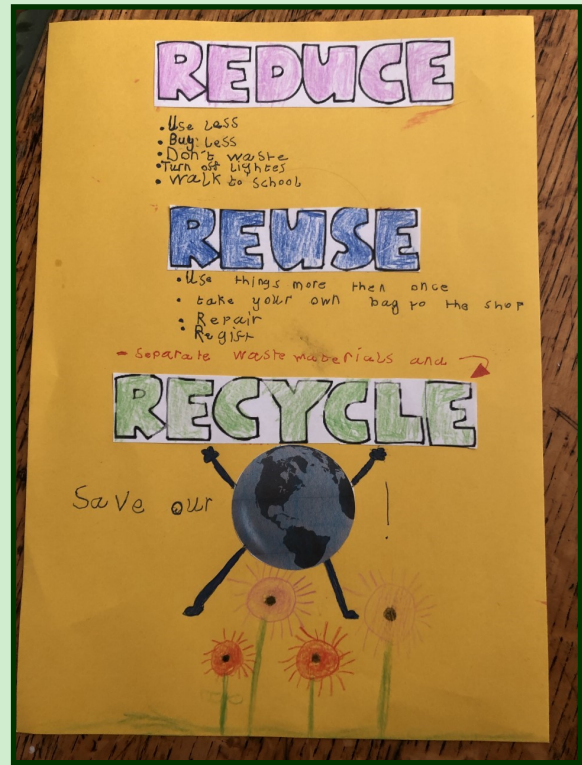 REDUCE
• Use Less
• Buy Less
• Don't waste
• Turn off Lightes
• walk to school
REUSE
• Use things more then once
• take your own bag to the shop
• Repair
• Regist
- Separate waste materials and
RECYCLE
Save our !